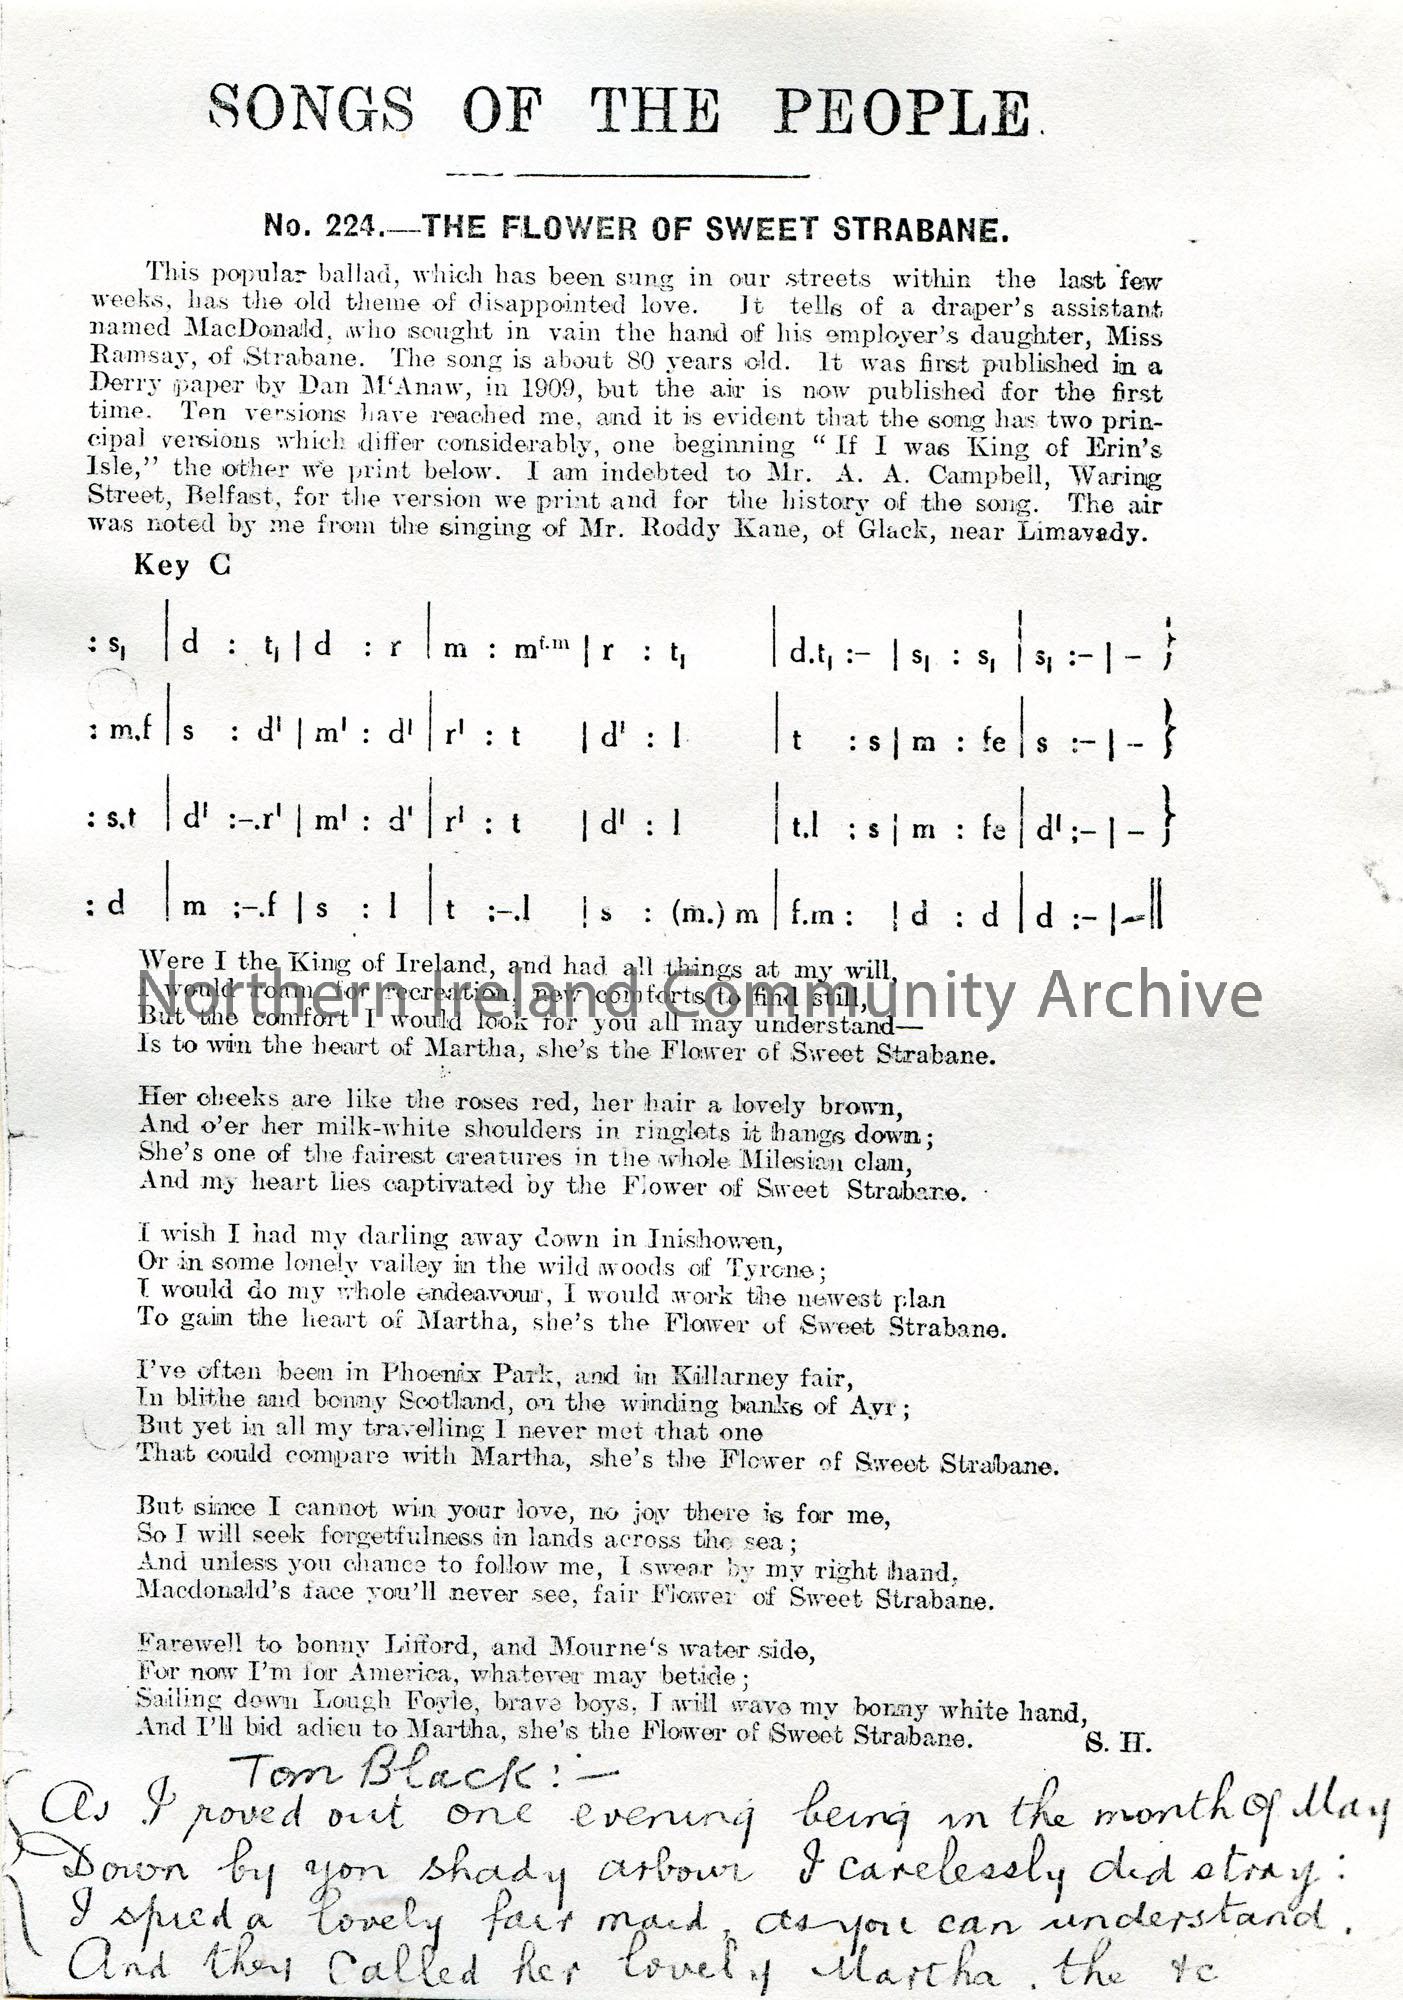 SONGS OF THE PEOPLE.
No. 224.—THE FLOWER OF SWEET STRABANE.
This popular ballad, which has been sung in our streets within the last few
weeks, has the old theme of disappointed love. It tells of a draper's assistant
named MacDonald, who sought in vain the hand of his employer's daughter, Miss
Ramsay, of Strabane. The song is about 80 years old. It was first published in a
Derry paper by Dan M'Anaw, in 1909, but the air is now published for the first
time. Ten versions have reached me, and it is evident that the song has two prin-
cipal versions which differ considerably, one beginning "If I was King of Erin's
Isle," the other we print below. I am indebted to Mr. A. A. Campbell, Waring
Street, Belfast, for the version we print and for the history of the song. The air
was noted by me from the singing of Mr. Roddy Kane, of Glack, near Limavady.
Key C
: s₁ | d : t₁ | d : r | m : mᶠ·ᵐ | r : t₁ | d.t₁ :– | s₁ : s₁ | s₁ :– | – }
: m.f | s : d' | m' : d' | r' : t | d' : l | t : s | m : fe | s :– | – }
: s.t | d' :–.r' | m' : d' | r' : t | d' : l | t.l : s | m : fe | d' :– | – }
: d | m :–.f | s : l | t :–.l | s : (m.) m | f.m : | d : d | d :– | – ||
Were I the King of Ireland, and had all things at my will,
I would roam for recreation, new comforts to find still,
But the comfort I would look for you all may understand—
Is to win the heart of Martha, she's the Flower of Sweet Strabane.
Northern Ireland Community Archive
Her cheeks are like the roses red, her hair a lovely brown,
And o'er her milk-white shoulders in ringlets it hangs down;
She's one of the fairest creatures in the whole Milesian clan,
And my heart lies captivated by the Flower of Sweet Strabane.
I wish I had my darling away down in Inishowen,
Or in some lonely valley in the wild woods of Tyrone;
I would do my whole endeavour, I would work the newest plan
To gain the heart of Martha, she's the Flower of Sweet Strabane.
I've often been in Phoenix Park, and in Killarney fair,
In blithe and bonny Scotland, on the winding banks of Ayr;
But yet in all my travelling I never met that one
That could compare with Martha, she's the Flower of Sweet Strabane.
But since I cannot win your love, no joy there is for me,
So I will seek forgetfulness in lands across the sea;
And unless you chance to follow me, I swear by my right hand,
Macdonald's face you'll never see, fair Flower of Sweet Strabane.
Farewell to bonny Lifford, and Mourne's water side,
For now I'm for America, whatever may betide;
Sailing down Lough Foyle, brave boys, I will wave my bonny white hand,
And I'll bid adieu to Martha, she's the Flower of Sweet Strabane.
S. H.
Tom Black:—
As I roved out one evening being in the month of May
Down by yon shady arbour I carelessly did stray:
I spied a lovely fair maid, as you can understand.
And they called her lovely Martha. the &c